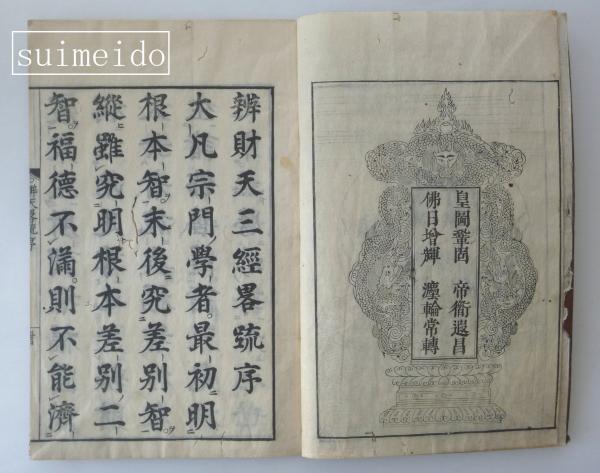 suimeido
皇圖鞏固 帝衜遐昌
佛日增輝 灋輪常轉
辨財天三經畧疏序
大凡宗門學者最初明
根本智末後究差別智
縱雖究明根本差別二
智福德不滿則不能濟